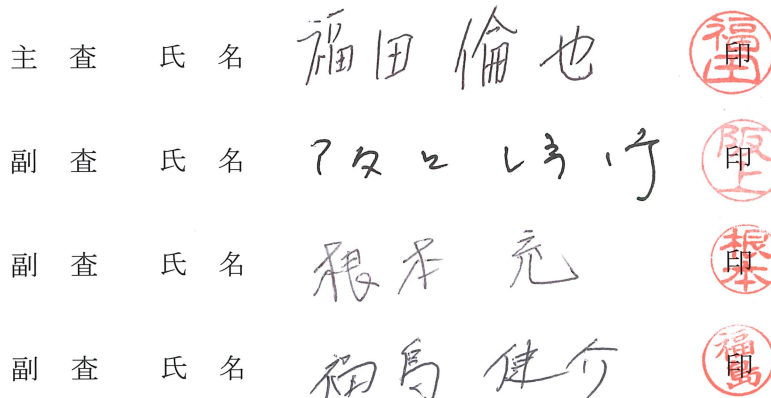 主査 氏名 福田 倫也 印 福田
副査 氏名 阪上 印 阪上
副査 氏名 根本 充 印 根本
副査 氏名 福島 健介 印 福島